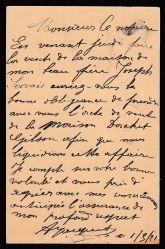 Monsieur le notaire
En venant jeudi faire
la vente de la maison de
mon beau frère Joseph
auriez-vous la
bonne obligeance de prendre
avec vous l'acte de vente
de la maison
Gilson afin que nous
liquidions cette affaire
Je compte sur votre bonne
volonté et vous prie d'
agréer avec mes
l'assurance de
mon profond respect